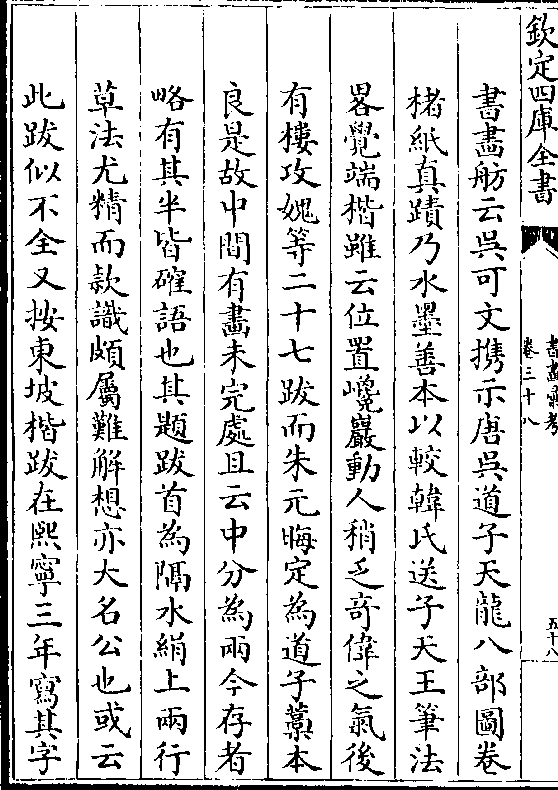 欽定四庫全書
書畵彚考
卷三十八
五十八
書畵舫云吳可文攜示唐吳道子天龍八部圖卷
楮紙真蹟乃水墨善本以較韓氏送子天王筆法
畧覺端楷雖云位置巉巖動人稍乏竒偉之氣後
有樓攻媿等二十七跋而朱元晦定為道子藁本
良是故中間有畫未完處且云中分為兩今存者
略有其半皆確語也其題跋首為隔水絹上兩行
草法尤精而款識頗屬難解想亦大名公也或云
此跋似不全又按東坡楷跋在熙寧三年寫其字